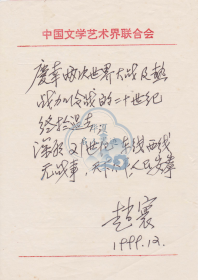 中国文学艺术界联合会
庆幸两次世界大战及热
战加冷战的二十世纪
终于过去
深祝21世纪东线西线
无战事，天下太平人民安康
赵寰
1999.12.